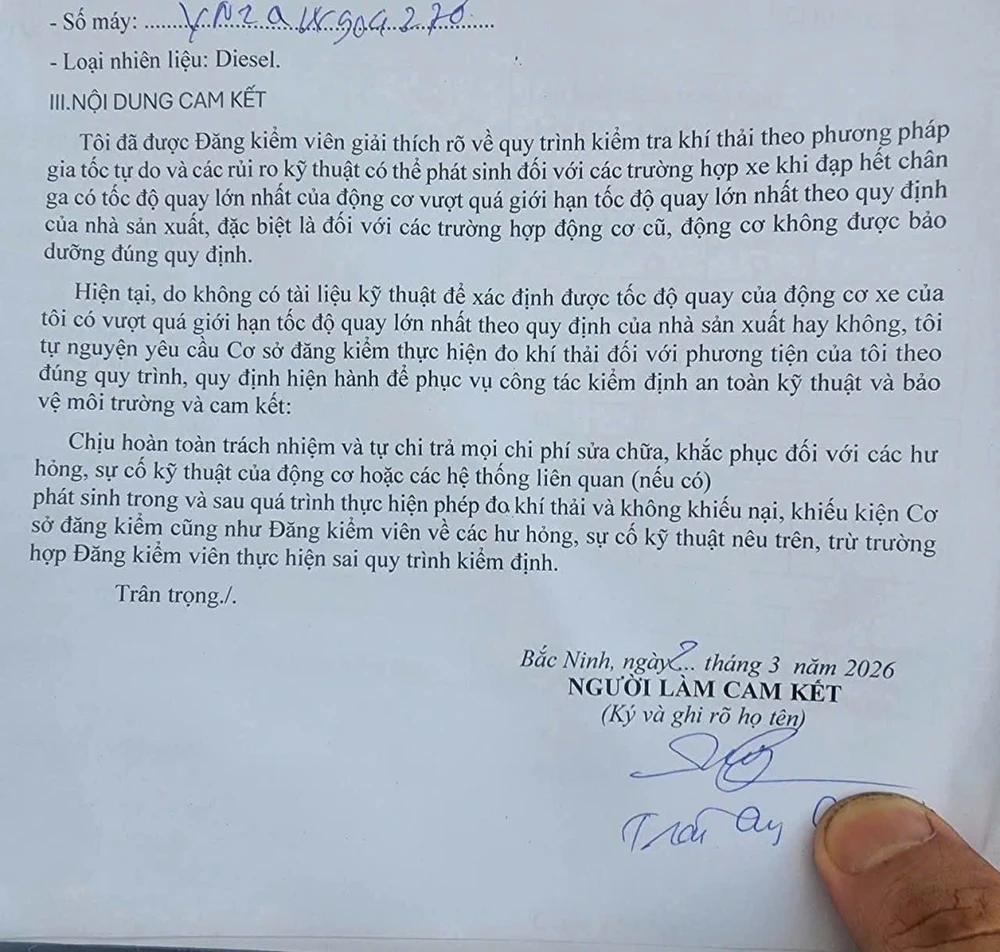 - Số máy: ..........
- Loại nhiên liệu: Diesel.
III.NỘI DUNG CAM KẾT
Tôi đã được Đăng kiểm viên giải thích rõ về quy trình kiểm tra khí thải theo phương pháp
gia tốc tự do và các rủi ro kỹ thuật có thể phát sinh đối với các trường hợp xe khi đạp hết chân
ga có tốc độ quay lớn nhất của động cơ vượt quá giới hạn tốc độ quay lớn nhất theo quy định
của nhà sản xuất, đặc biệt là đối với các trường hợp động cơ cũ, động cơ không được bảo
dưỡng đúng quy định.
Hiện tại, do không có tài liệu kỹ thuật để xác định được tốc độ quay của động cơ xe của
tôi có vượt quá giới hạn tốc độ quay lớn nhất theo quy định của nhà sản xuất hay không, tôi
tự nguyện yêu cầu Cơ sở đăng kiểm thực hiện đo khí thải đối với phương tiện của tôi theo
đúng quy trình, quy định hiện hành để phục vụ công tác kiểm định an toàn kỹ thuật và bảo
vệ môi trường và cam kết:
Chịu hoàn toàn trách nhiệm và tự chi trả mọi chi phí sửa chữa, khắc phục đối với các hư
hỏng, sự cố kỹ thuật của động cơ hoặc các hệ thống liên quan (nếu có)
phát sinh trong và sau quá trình thực hiện phép đo khí thải và không khiếu nại, khiếu kiện Cơ
sở đăng kiểm cũng như Đăng kiểm viên về các hư hỏng, sự cố kỹ thuật nêu trên, trừ trường
hợp Đăng kiểm viên thực hiện sai quy trình kiểm định.
Trân trọng./.
Bắc Ninh, ngày 2... tháng 3 năm 2026
NGƯỜI LÀM CAM KẾT
(Ký và ghi rõ họ tên)